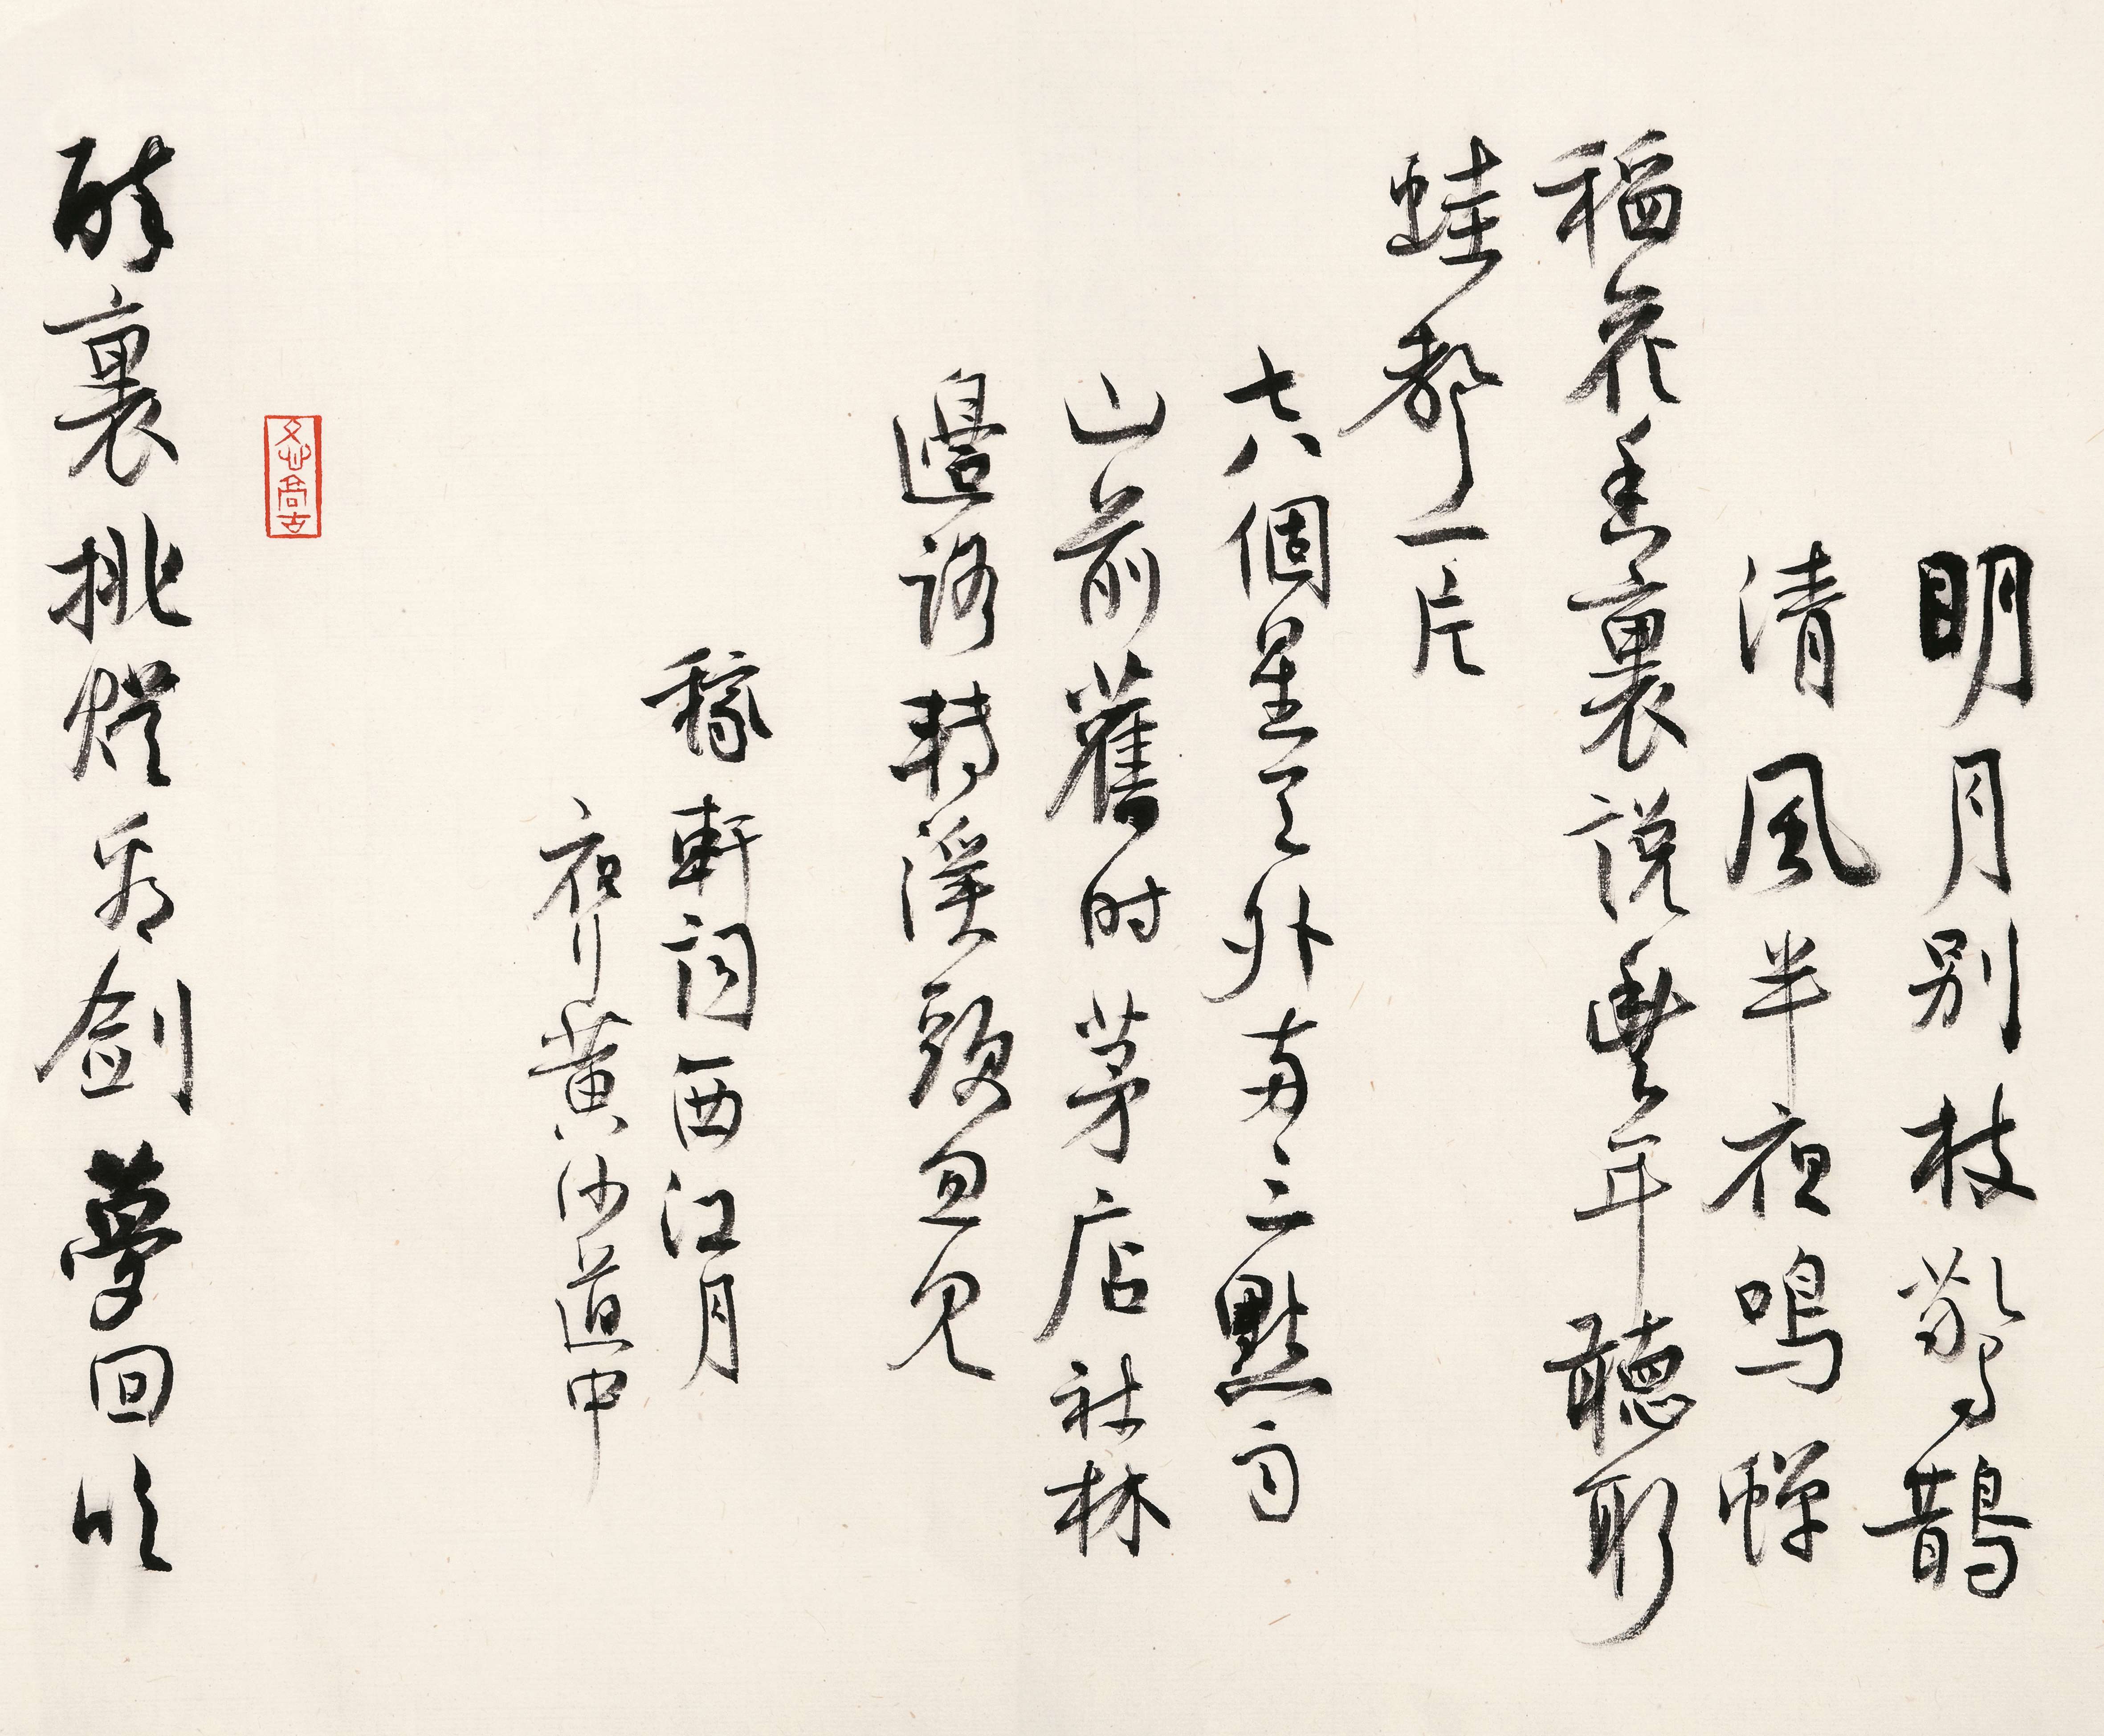 明月别枝驚鵲
清風半夜鳴蟬
稻花香裏説豐年聽取
蛙聲一片
七八個星天外兩三點雨
山前舊时茅店社林
邊路轉溪頭忽見
稼軒詞西江月
夜行黄沙道中
醉裏挑燈看剑夢回吹